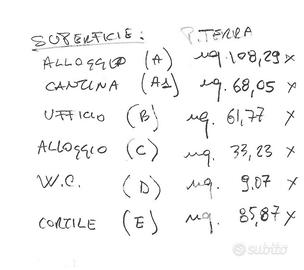 SUPERFICIE: P. TERRA
ALLOGGIO (A) mq. 108,29 x
CANTINA (A1) mq. 68,05 x
UFFICIO (B) mq. 61,77 x
ALLOGGIO (C) mq. 33,23 x
W.C. (D) mq. 9,07 x
CORTILE (E) mq. 85,87 x
subito